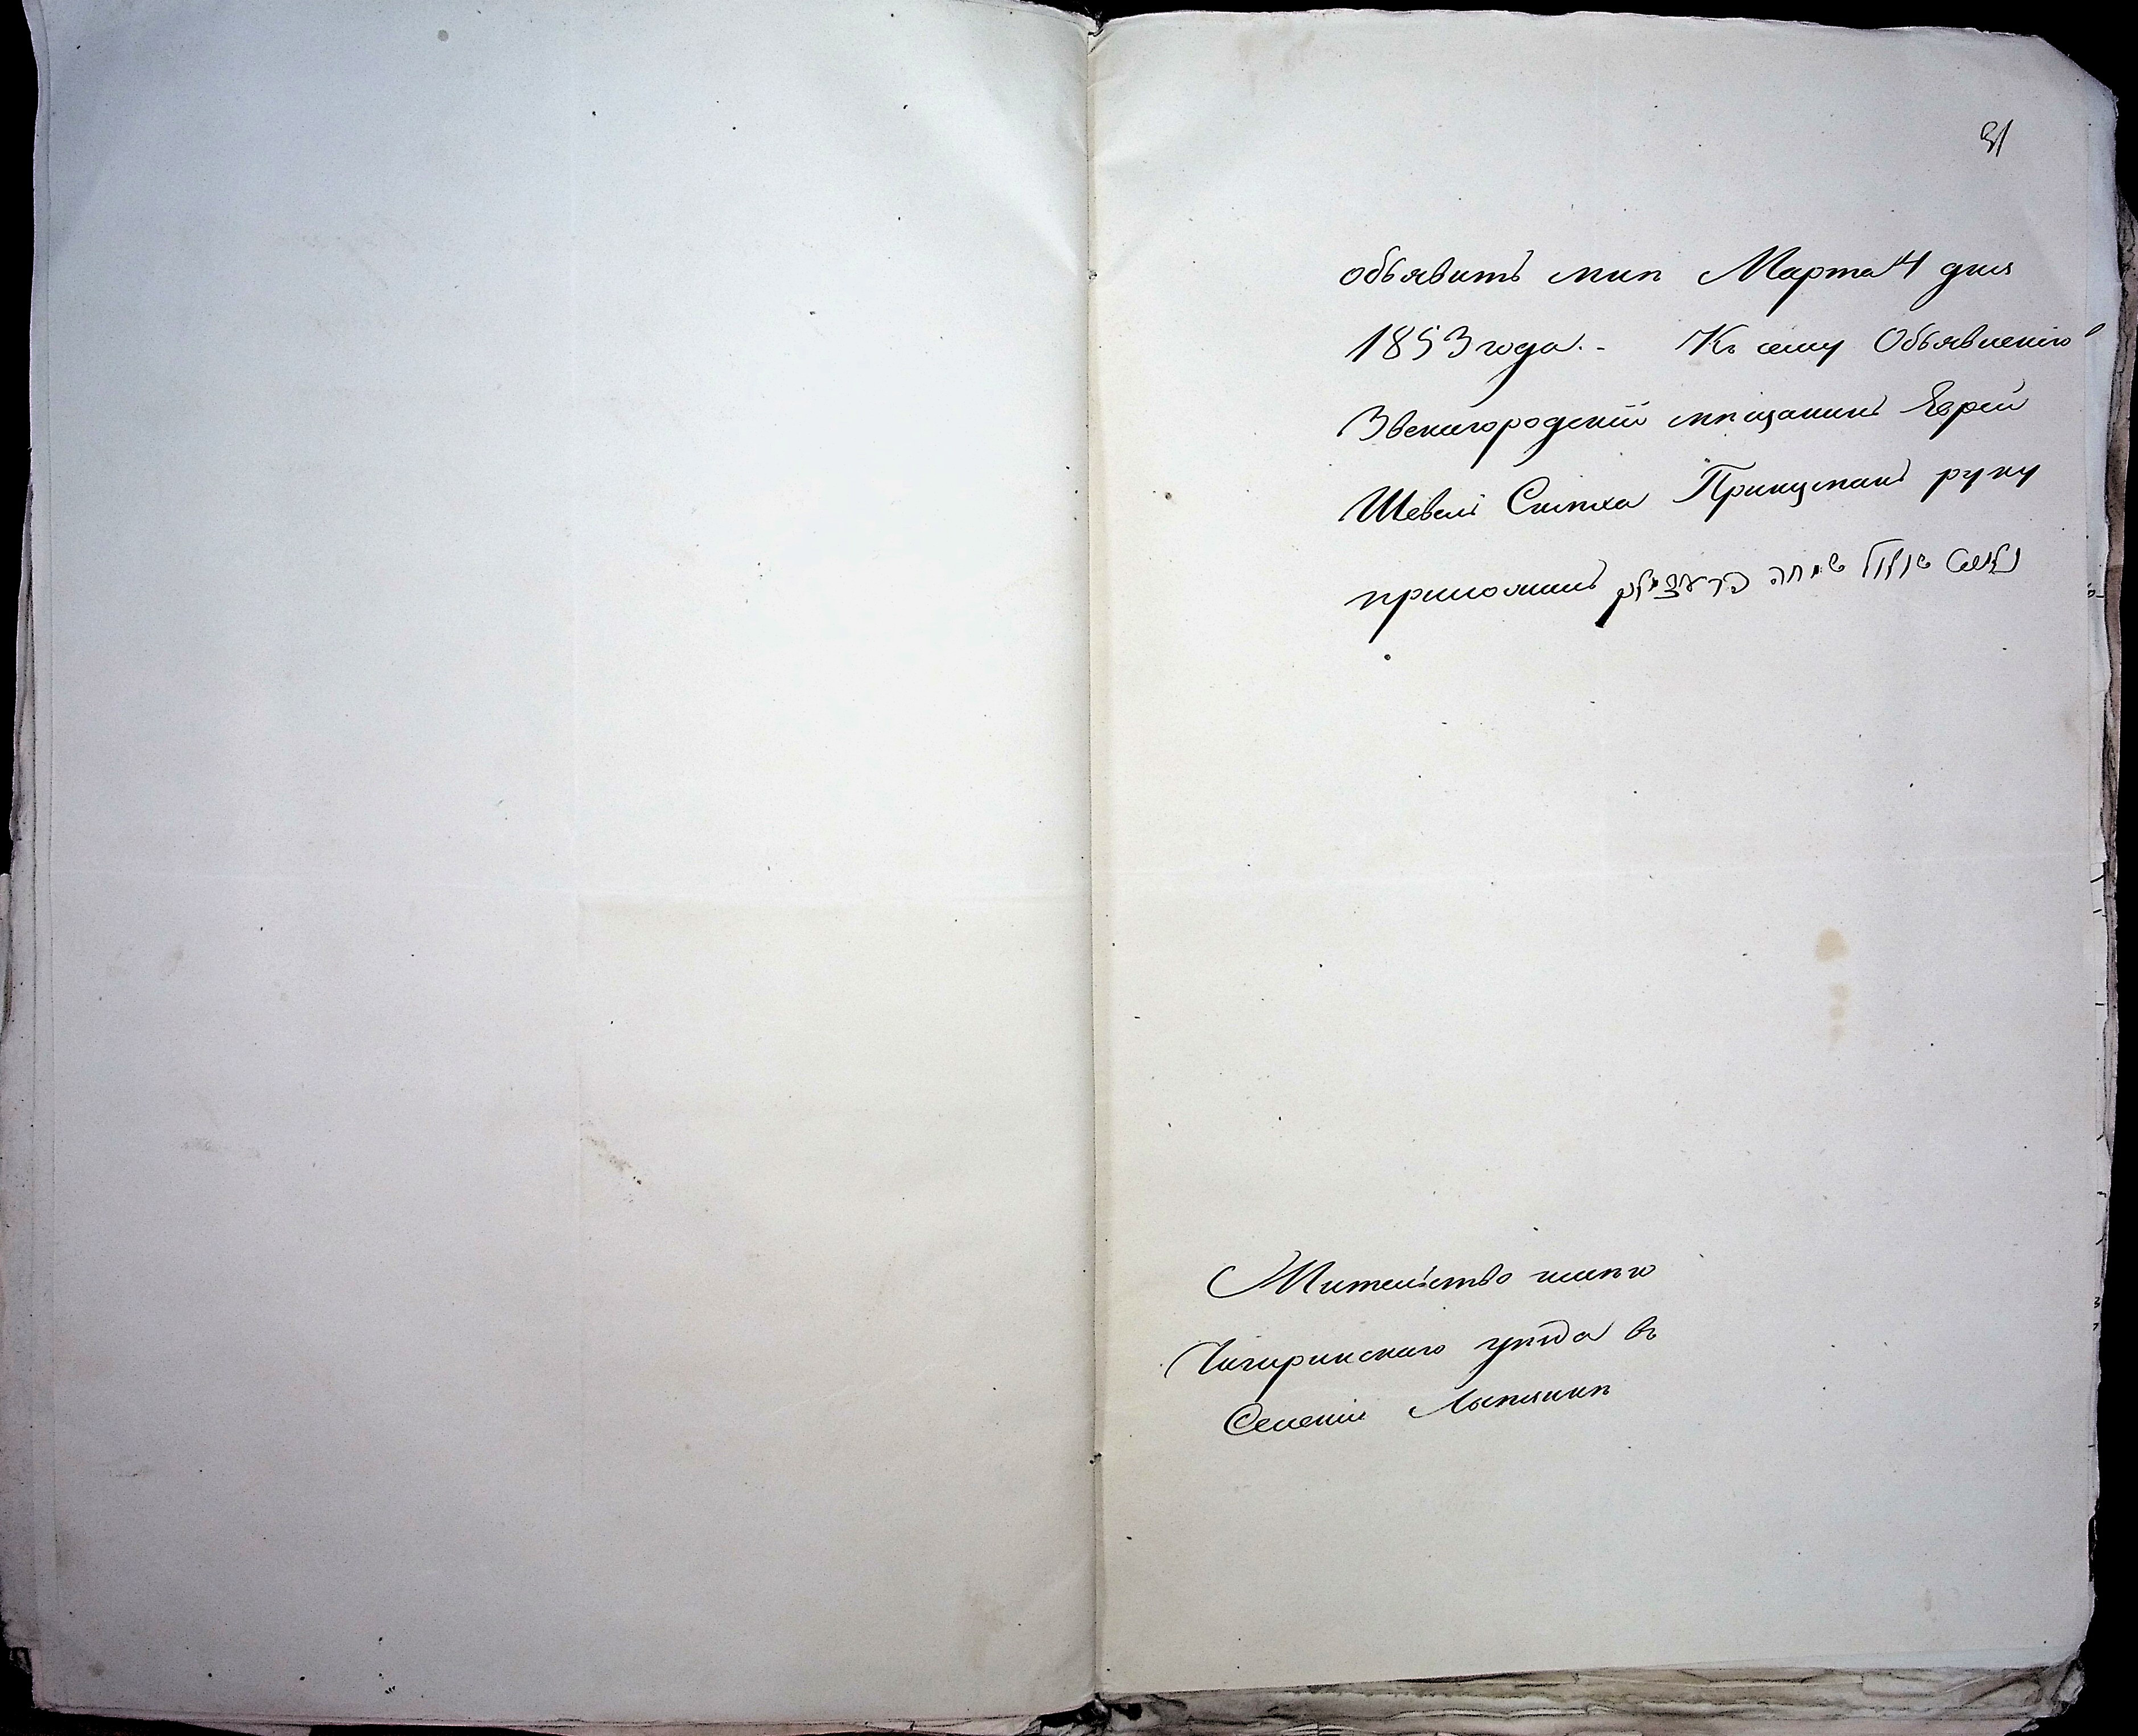 31
объявить мнѣ Марта 4 дня
1853 года. - Къ сему Объявленію
Звенигородскій мѣщанинъ Еврей
Шевель Симха Прицманъ руку
приложилъ נאום שעוויל שימחה
Жительство имѣю
Чигиринскаго уѣзда въ
Селеніи